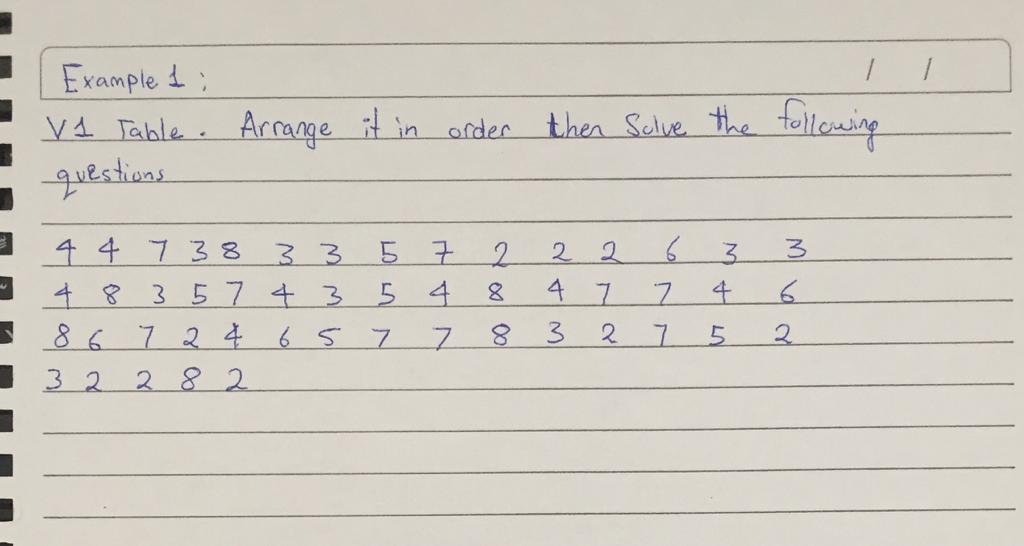 Example 1 ;
/ /
V1 Table . Arrange it in order then Solve the following
questions
4 4 7 3 8 3 3 5 7 2 2 2 6 3 3
4 8 3 5 7 4 3 5 4 8 4 7 7 4 6
8 6 7 2 4 6 5 7 7 8 3 2 7 5 2
3 2 2 8 2